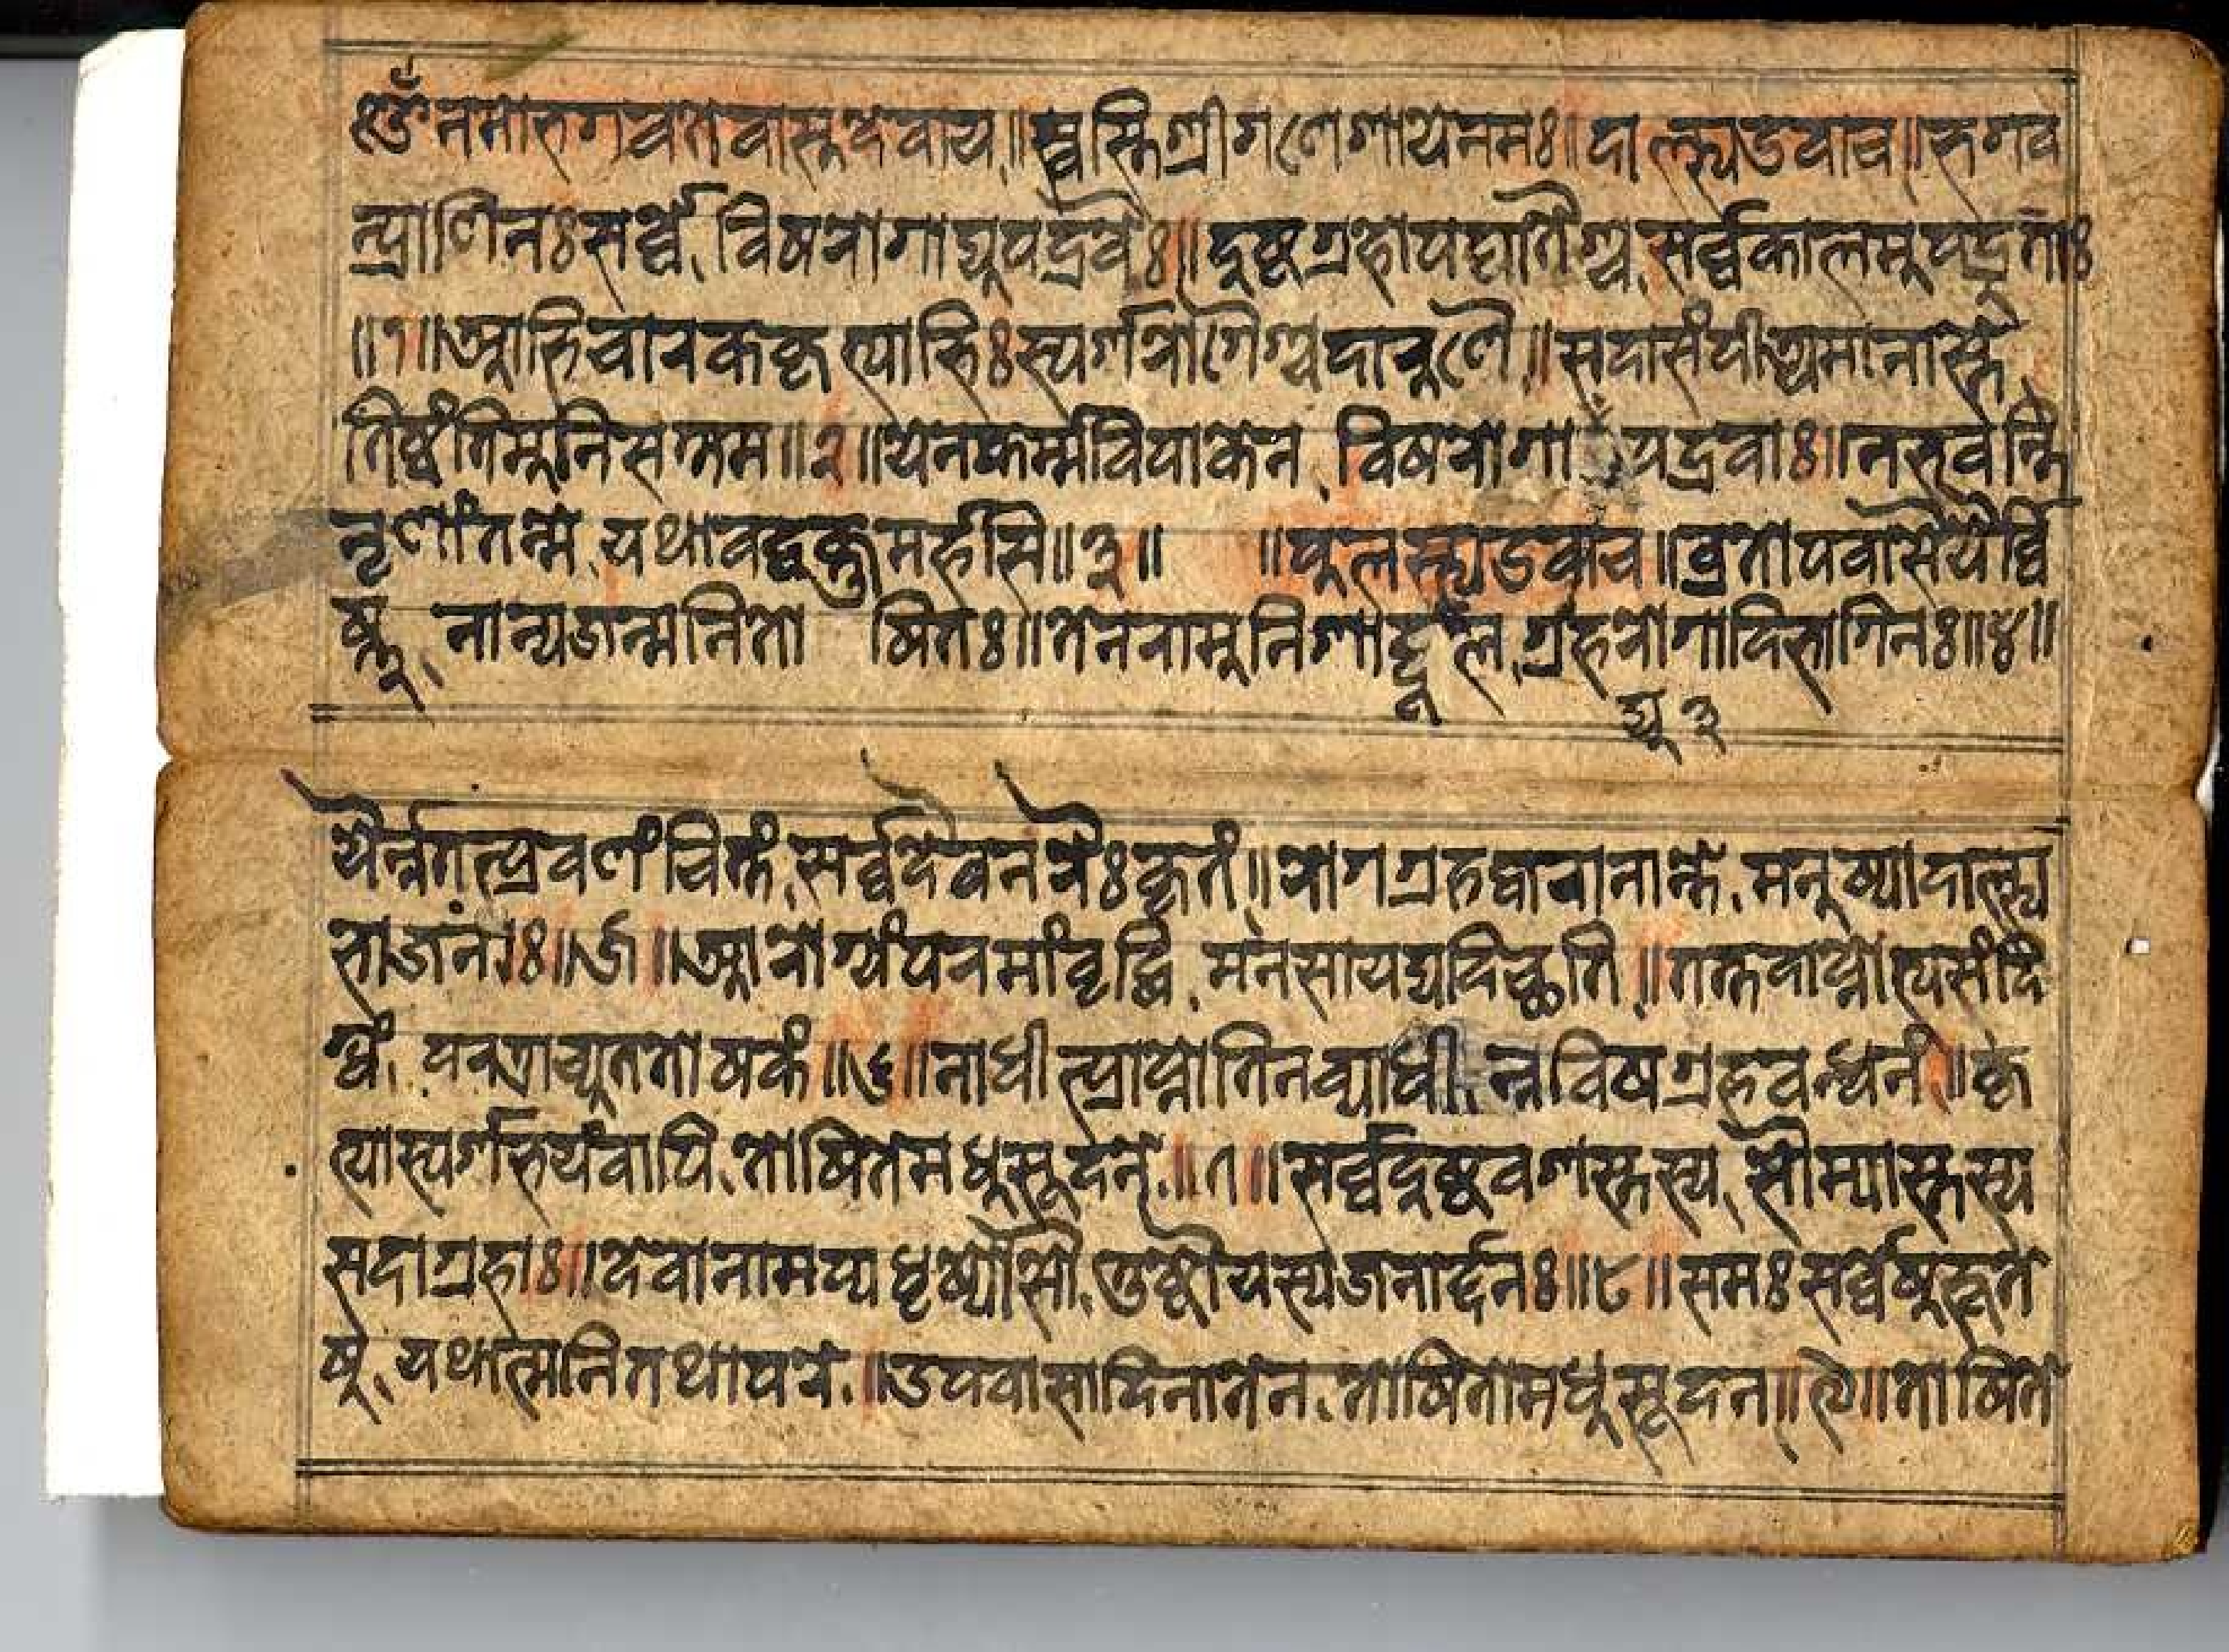 ॐ नमो भगवते वासुदेवाय ॥ स्वस्ति श्रीगणेशाय नमः ॥ दाल्भ्य उवाच ॥ भगव
न्प्राणिनः सर्व्वे विषरोगाद्युपद्रवैः ॥ दुष्टग्रहोपघातैश्च सर्व्वकालमुपद्रुताः
॥ १ ॥ आभिचारककृत्याभिः स्पर्शरोगैश्च दारुणै ॥ सदा संपीड्यमानास्ते
तिष्ठंति मुनिसत्तम ॥ २ ॥ येन कर्म्मविपाकेन विषरोगा पद्रवाः ॥ न भवन्ति
नृणां तन्मे यथावद्वक्तुमर्हसि ॥ ३ ॥ ॥ पुलस्त्य उवाच ॥ व्रतोपवासैर्यैर्व्वि
ष्णु नान्यजन्मनि तोषितः ॥ ते नरा मुनिशार्द्दूल ग्रहरोगादिभागिनः ॥ ४ ॥
द्यु ३
यैर्न्न तत्प्रवणं चित्तं सर्व्वदैव नरैः कृतं ॥ रोगग्रहद्वाराणान्ते मनुष्या दाल्भ्य
भाजनाः ॥ ५ ॥ आरोग्यं परमां वृद्धिं मनसा यद्यदिच्छति ॥ तत्तदाप्नोत्यसंदि
ग्धं परत्राच्युततोषकं ॥ ६ ॥ नाधीन्प्राप्नोति न व्याधी न्न विषग्रहबन्धनं ॥ कृ
त्यास्पर्शभयं वापि तोषिते मधुसूदने ॥ ७ ॥ सर्व्वदुष्टवशस्तस्य सौम्यास्तस्य
सदा ग्रहाः ॥ देवानामप्यधृष्योसौ तुष्टो यस्य जनार्द्दनः ॥ ८ ॥ समः सर्व्वेषु भूते
षु यथात्मनि तथा परे ॥ उपवासादिना तेन तोषितो मधुसूदन ॥ ९ ॥ तोषिते